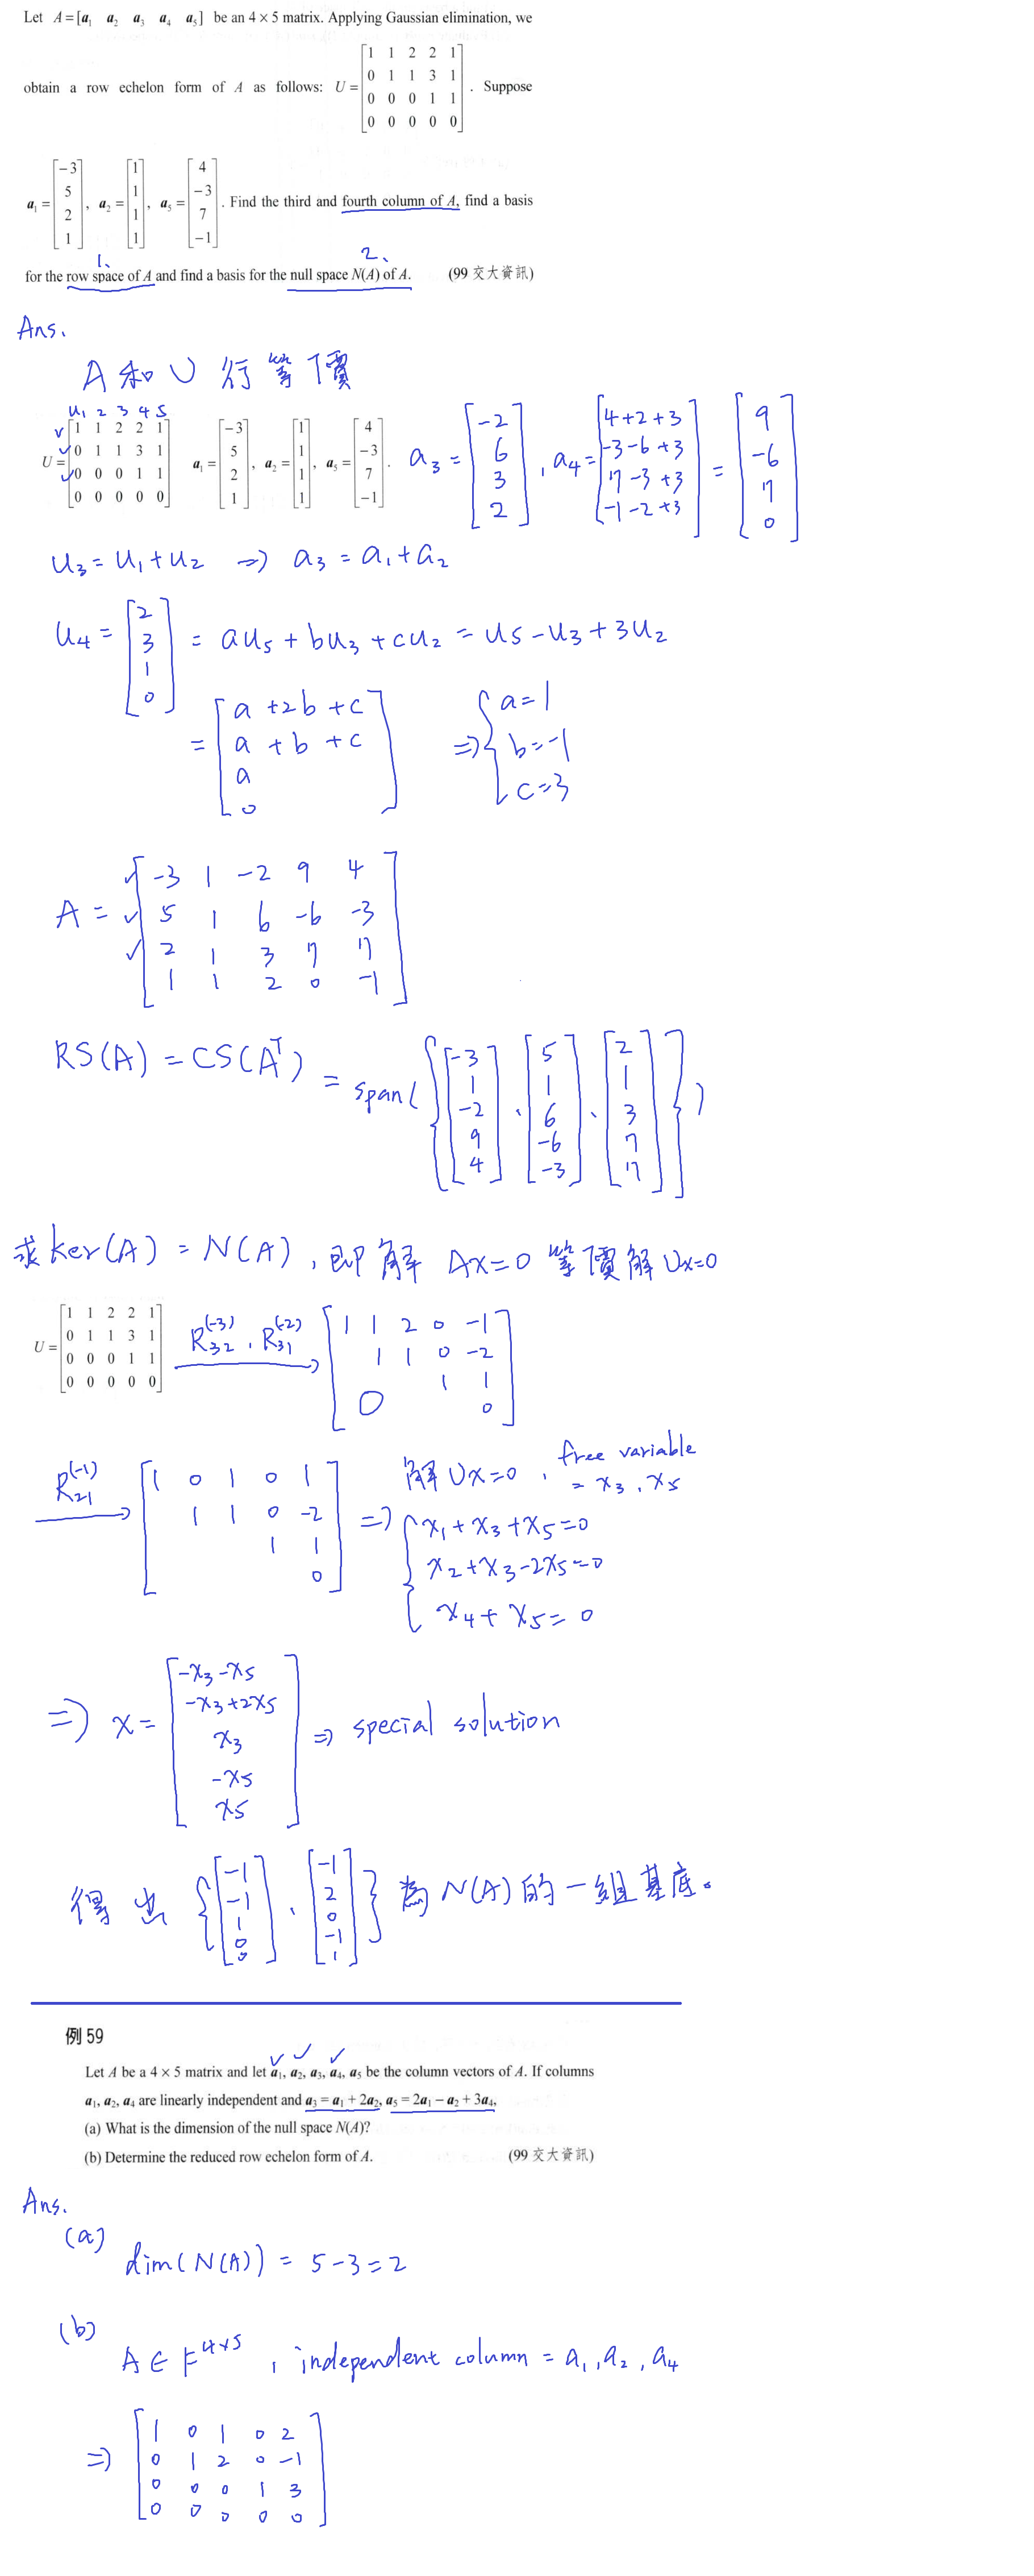 Let A = [a₁ a₂ a₃ a₄ a₅] be an 4 × 5 matrix. Applying Gaussian elimination, we
obtain a row echelon form of A as follows: U = [1 1 2 2 1; 0 1 1 3 1; 0 0 0 1 1; 0 0 0 0 0]. Suppose
a₁ = [-3; 5; 2; 1], a₂ = [1; 1; 1; 1], a₅ = [4; -3; 7; -1]. Find the third and fourth column of A, find a basis
1. 2.
for the row space of A and find a basis for the null space N(A) of A. (99 交大資訊)
Ans.
A 和 U 行等價
u₁ 2 3 4 5
U = [1 1 2 2 1; 0 1 1 3 1; 0 0 0 1 1; 0 0 0 0 0] a₁ = [-3; 5; 2; 1], a₂ = [1; 1; 1; 1], a₅ = [4; -3; 7; -1]. a₃ = [-2; 6; 3; 2], a₄ = [4+2+3; -3-6+3; 7-3+3; -1-2+3] = [9; -6; 7; 0]
u₃ = u₁ + u₂ ⇒ a₃ = a₁ + a₂
u₄ = [2; 3; 1; 0] = au₅ + bu₃ + cu₂ = u₅ - u₃ + 3u₂
= [a + 2b + c; a + b + c; a; 0] ⇒ { a = 1
b = -1
c = 3
A = [-3 1 -2 9 4; 5 1 6 -6 -3; 2 1 3 7 7; 1 1 2 0 -1]
RS(A) = CS(Aᵀ) = span({[-3; 1; -2; 9; 4], [5; 1; 6; -6; -3], [2; 1; 3; 7; 7]})
求 ker(A) = N(A), 即解 Ax=0 等價解 Ux=0
U = [1 1 2 2 1; 0 1 1 3 1; 0 0 0 1 1; 0 0 0 0 0] R₃₂⁽⁻³⁾, R₃₁⁽⁻²⁾ → [1 1 2 0 -1; 1 1 0 -2; 1 1; 0 0]
R₂₁⁽⁻¹⁾ → [1 0 1 0 1; 1 1 0 -2; 1 1; 0] ⇒ 解 Ux=0, free variable
= x₃, x₅
{ x₁ + x₃ + x₅ = 0
x₂ + x₃ - 2x₅ = 0
x₄ + x₅ = 0
⇒ x = [-x₃-x₅; -x₃+2x₅; x₃; -x₅; x₅] ⇒ special solution
得出 {[-1; -1; 1; 0; 0], [-1; 2; 0; -1; 1]} 為 N(A) 的一組基底。
例 59
Let A be a 4 × 5 matrix and let a₁, a₂, a₃, a₄, a₅ be the column vectors of A. If columns
a₁, a₂, a₄ are linearly independent and a₃ = a₁ + 2a₂, a₅ = 2a₁ − a₂ + 3a₄,
(a) What is the dimension of the null space N(A)?
(b) Determine the reduced row echelon form of A. (99 交大資訊)
Ans.
(a)
dim(N(A)) = 5 - 3 = 2
(b)
A ∈ F⁴ˣ⁵, independent column = a₁, a₂, a₄
⇒ [1 0 1 0 2; 0 1 2 0 -1; 0 0 0 1 3; 0 0 0 0 0]